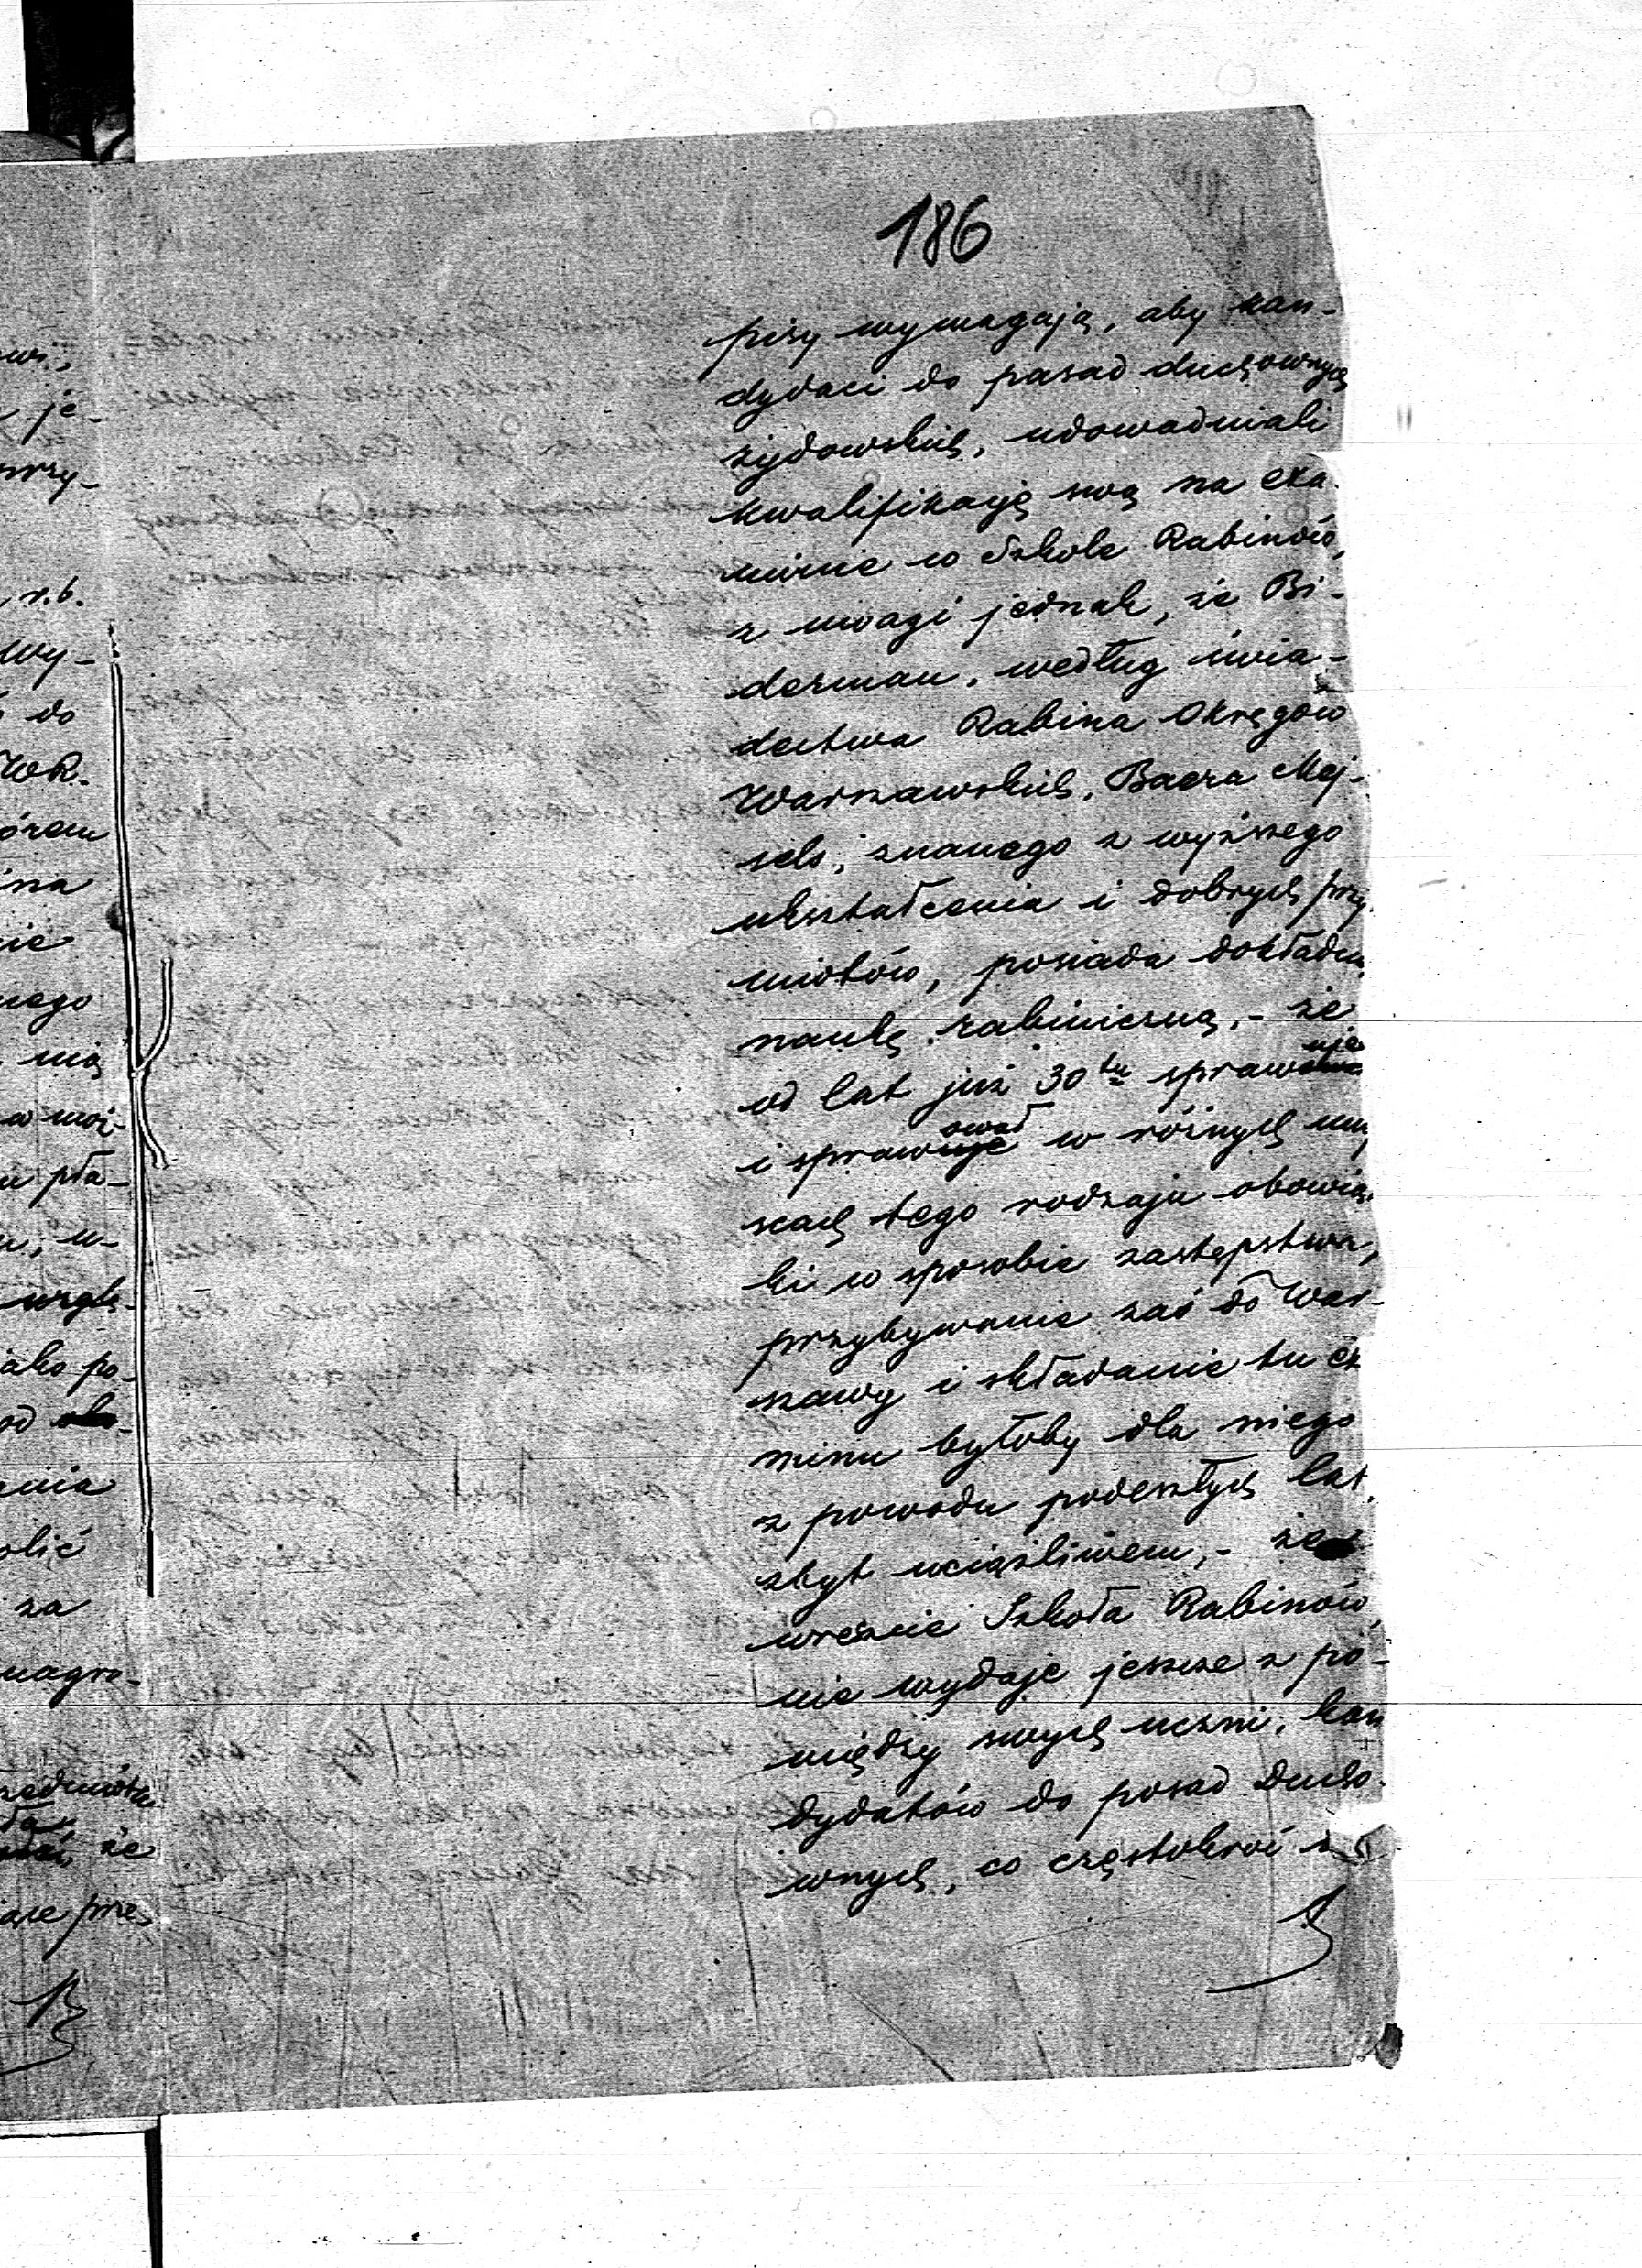 186
pisy wymagają, aby kan-
dydaci do posad duchownych
żydowskich, udowadniali
kwalifikację swą na exa-
minie w Szkole Rabinów,
z uwagi jednak, że Bi-
derman, według świa-
dectwa Rabina Okręgów
Warszawskich, Baera Mej-
sels, znanego z wyższego
ukształcenia i dobrych przy
miotów, posiada dokładną
naukę rabiniczną, - że
uje
od lat już 30tu sprawował
ował
i sprawuje w różnych miej
scach tego rodzaju obowiąz
ki w sposobie zastępstwa,
przybywanie zaś do War-
szawy i składanie tu ex
minu byłoby dla niego
z powodu podeszłych lat,
zbyt uciążliwem, - że
wreszcie Szkoła Rabinów,
nie wydaje jeszcze z po-
między swych uczni, kan
dydatów do posad Ducho-
wnych, co częstokroć
wi,
je-
przy-
r.b.
wy-
do
WR.
órem
ina
nie
nego
nią
a moż-
u pła-
u, u-
wzglę-
jako po-
od
nia
olić
za
nagro-
że